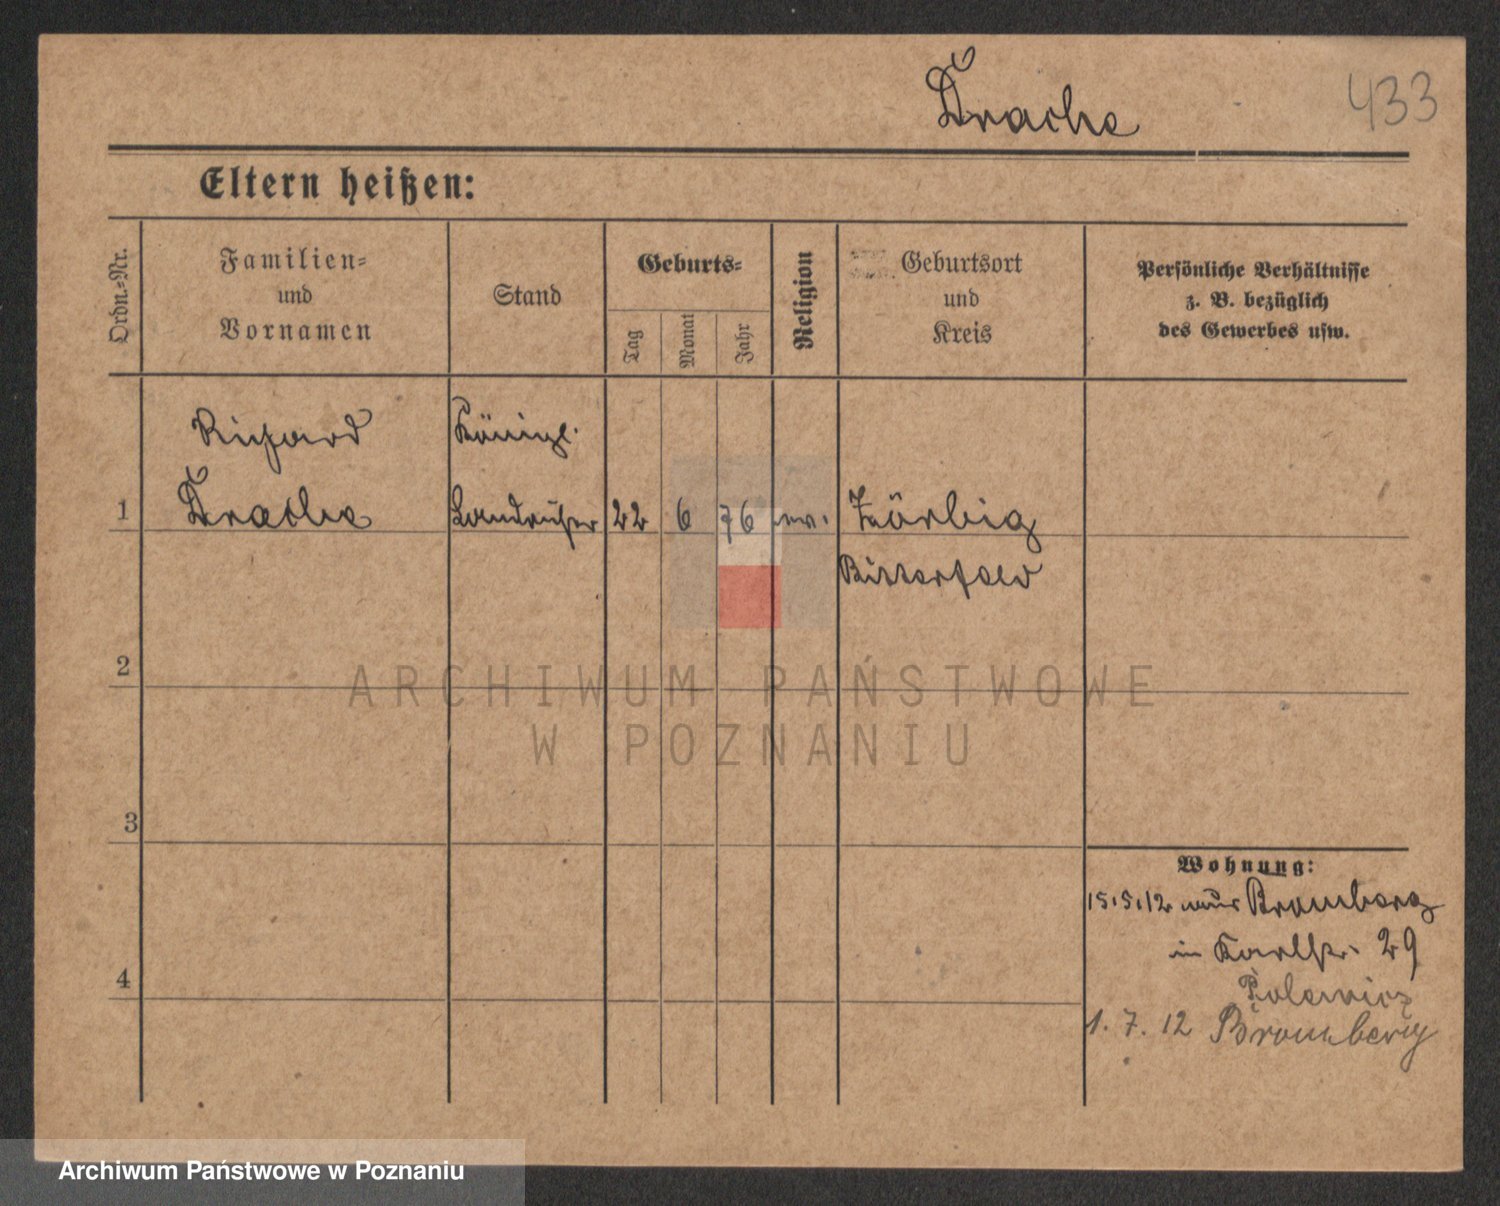 Drache
433
Eltern heißen:
Ordn.-Nr.
Familien-
und
Vornamen
Stand
Geburts-
Tag
Monat
Jahr
Religion
Geburtsort
und
Kreis
Persönliche Verhältnisse
z. B. bezüglich
des Gewerbes usw.
Richard
Drache
Königl.
Landrichter
1
22
6
76
ev.
Zörbig
Bitterfeld
2
3
4
Wohnung:
15.5.12 aus Bromberg
in Karlstr. 29
Polewicz
1. 7. 12 Bromberg
ARCHIWUM PAŃSTWOWE
W POZNANIU
Archiwum Państwowe w Poznaniu